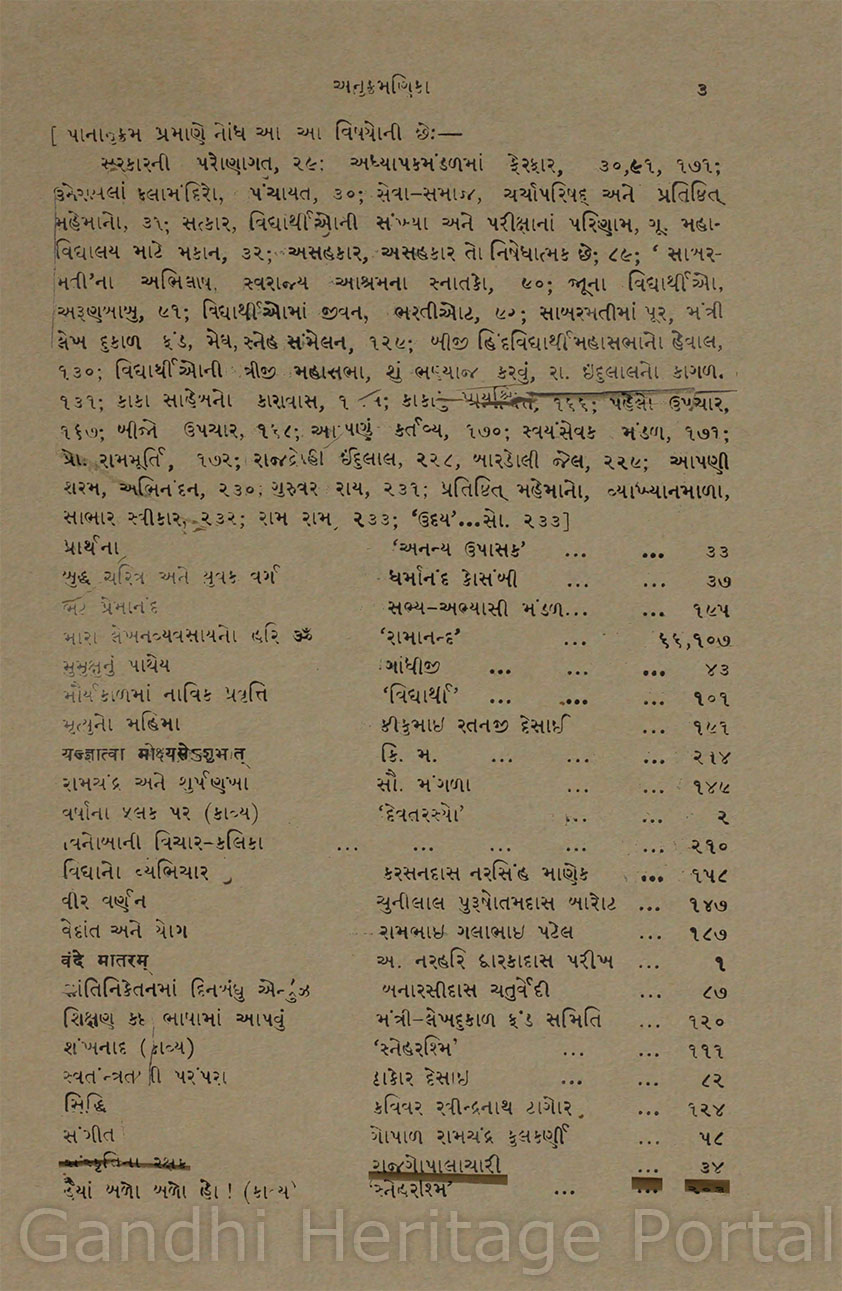 અનુક્રમણિકા ૩
[ પાનાનુક્રમ પ્રમાણે નોંધ આ આ વિષયોની છેઃ—
સરકારની પરોણાગત, ૨૯; અધ્યાપકમંડળમાં ફેરફાર, ૩૦,૯૧, ૧૭૧;
કલામંદિરો, પંચાયત, ૩૦; સેવા-સમાજ, ચર્ચાપરિષદ્ અને પ્રતિષ્ઠિત
મહેમાનો, ૩૧; સત્કાર, વિદ્યાર્થીઓની સંખ્યા અને પરીક્ષાનાં પરિણામ, ગૂ. મહા-
વિદ્યાલય માટે મકાન, ૩૨; અસહકાર, અસહકાર તો નિષેધાત્મક છે; ૮૯; ‘ સાબર-
મતી’ના અભિલાષ, સ્વરાજ્ય આશ્રમના સ્નાતકો, ૯૦; જૂના વિદ્યાર્થીઓ,
અરૂણબાબુ, ૯૧; વિદ્યાર્થીઓમાં જીવન, ભરતીઓટ, સાબરમતીમાં પૂર, મંત્રી
લેખ દુકાળ ફંડ, મેઘ, સ્નેહ સંમેલન, ૧૨૯; બીજી હિંદવિદ્યાર્થીમહાસભાનો હેવાલ,
૧૩૦; વિદ્યાર્થીઓની ત્રીજી મહાસભા, શું ભણ્યાજ કરવું, રા. ઇંદુલાલનો કાગળ.
૧૩૧; કાકા સાહેબનો કારાવાસ, કાકાનું પ્રાયશ્ચિત્ત, ૧૬૬; પહેલો ઉપચાર,
૧૬૭; બીજો ઉપચાર, ૧૬૮; આપણું કર્તવ્ય, ૧૭૦; સ્વયંસેવક મંડળ, ૧૭૧;
પ્રો. રામમૂર્તિ, ૧૭૨; રાજદ્રોહી ઈંદુલાલ, ૨૨૮, બારડોલી જેલ, ૨૨૯; આપણી
શરમ, અભિનંદન, ૨૩૦; ગુરુવર રાય, ૨૩૧; પ્રતિષ્ઠિત્ મહેમાનો, વ્યાખ્યાનમાળા,
સાભાર સ્વીકાર, ૨૩૨; રામ રામ, ૨૩૩; ‘ઉદય’...સો. ૨૩૩]
પ્રાર્થના ‘અનન્ય ઉપાસક’ ... ... ૩૩
બુદ્ધ ચરિત્ર અને યુવક વર્ગ ધર્માનંદ કોસંબી ... ... ૩૭
ભટ પ્રેમાનંદ સભ્ય-અભ્યાસી મંડળ... ... ૧૯૫
મારા લેખનવ્યવસાયનો હરિ ૐ ‘રામાનન્દ’ ... ૬૬,૧૦૭
મુમુક્ષુનું પાથેય ગાંધીજી ... ... ... ૪૩
મૌર્યકાળમાં નાવિક પ્રવૃત્તિ ‘વિદ્યાર્થી’ ... ... ... ૧૦૧
મૃત્યુનો મહિમા કીકુભાઇ રતનજી દેસાઈ ... ૧૯૧
यज्ज्ञात्वा मोक्ष्यसेऽशुभात् કિ. મ. ... ... ... ૨૧૪
રામચંદ્ર અને શુર્પણખા સૌ. મંગળા ... ... ૧૪૯
વર્ષાના ફલક પર (કાવ્ય) ‘દેવતરસ્યો’ ... ... ૨
વિનોબાની વિચાર-કલિકા ... ... ... ... ... ૨૧૦
વિદ્યાનો વ્યભિચાર કરસનદાસ નરસિંહ માણેક ... ૧૫૮
વીર વર્ણન ચુનીલાલ પુરૂષોતમદાસ બારોટ ... ૧૪૭
વેદાંત અને યોગ રામભાઇ ગલાભાઇ પટેલ ... ૧૮૭
वंदे मातरम् અ. નરહરિ દ્વારકાદાસ પરીખ ... ૧
શાંતિનિકેતનમાં દિનબંધુ એન્ડ્રુઝ બનારસીદાસ ચતુર્વેદી ... ૮૭
શિક્ષણ કઇ ભાષામાં આપવું મંત્રી-લેખદુકાળ ફંડ સમિતિ ... ૧૨૦
શંખનાદ (કાવ્ય) ‘સ્નેહરશ્મિ’ ... ... ૧૧૧
સ્વતંત્રતાની પરંપરા ઠાકોર દેસાઇ ... ... ૮૨
સિદ્ધિ કવિવર રવીન્દ્રનાથ ટાગોર ... ૧૨૪
સંગીત ગોપાળ રામચંદ્ર કુલકર્ણી ... ૫૮
સંસ્કૃતિના રક્ષક રાજગોપાલાચારી ... ૩૪
હૈયાં બળો બળો હો ! (કાવ્ય) ‘સ્નેહરશ્મિ’ ... ...
Gandhi Heritage Portal